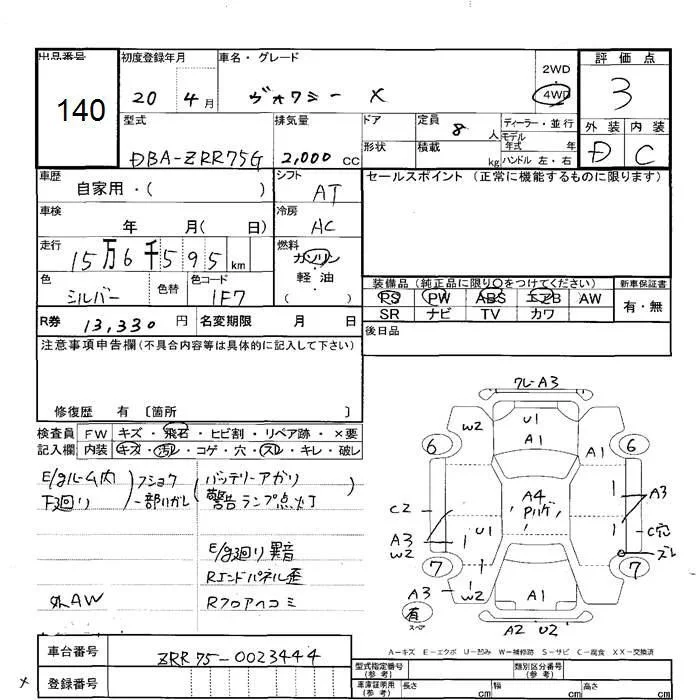 出品番号 初度登録年月 車名・グレード 評価点
140 20 4月 ヴォクシー X 2WD 4WD 3
型式 排気量 ドア 定員 8人 ディーラー・並行 外装 内装
DBA-ZRR75G 2,000cc 形状 積載 kg モデル年式 年 ハンドル 左・右 D C
車歴 自家用・( ) シフト AT セールスポイント (正常に機能するものに限ります)
車検 年 月( 日) 冷房 AC
走行 15万6千595km 燃料 ガソリン
軽・油
( )
色 シルバー 色替 色コード 1F7
装備品 (純正品に限り○をつけてください) 新車保証書
PS PW ABS エアB AW 有・無
SR ナビ TV カワ
R券 13,330円 名変期限 月 日 後日品
注意事項申告欄(不具合内容等は具体的に記入して下さい)
修復歴 有 〔箇所 〕
検査員 FW キズ・飛石・ヒビ割・リペア跡・×要
記入欄 内装 キズ・汚レ・コゲ・穴・スレ・キレ・破レ
E/gルーム内
下廻り
フショク
一部ハガレ
バッテリーアガリ
警告ランプ点灯
E/g廻り異音
Rエンドパネル歪
外AW Rフロアヘコミ
クレ-A3
W2 U1
6 A1 A1 6
A4 A3
C2 Pハゲ
A3 U1 C穴
W2 スレ
7 7
A3 W2 A1
有
スペア
A2 U2
A-キズ E-エクボ U-凹み W-補修跡 S-サビ C-腐食 XX-交換済
車台番号 ZRR75-0023444
登録番号
型式指定番号(参考) 類別区分番号(参考)
車庫証明用(参考) 長さ cm 幅 cm 高さ cm
×